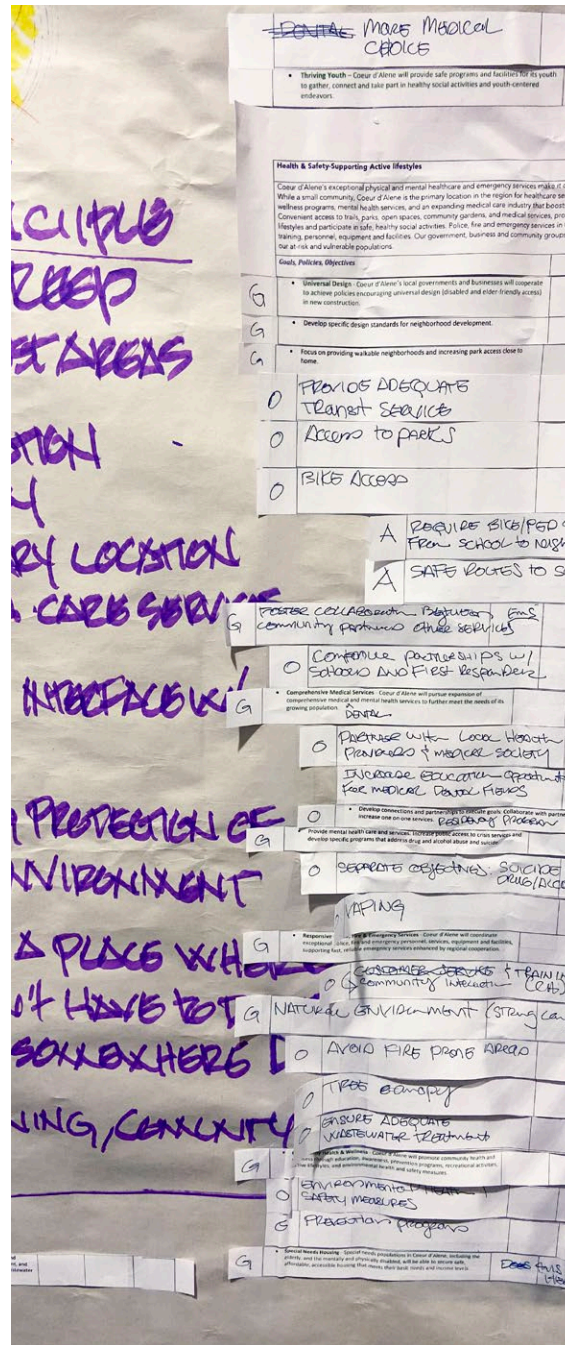 MORE MEDICAL
CHOICE
• Thriving Youth – Coeur d'Alene will provide safe programs and facilities for its youth
to gather, connect and take part in healthy social activities and youth-centered
endeavors.
Health & Safety-Supporting Active lifestyles
Coeur d'Alene's exceptional physical and mental healthcare and emergency services make it
While a small community, Coeur d'Alene is the primary location in the region for healthcare
wellness programs, mental health services, and an expanding medical care industry that boost
Convenient access to trails, parks, open spaces, community gardens, and medical services,
lifestyles and participate in safe, healthy social activities. Police, fire and emergency services in
training, personnel, equipment and facilities. Our government, business and community groups
our at-risk and vulnerable populations.
Goals, Policies, Objectives
G • Universal Design - Coeur d'Alene's local governments and businesses will cooperate
to achieve policies encouraging universal design (disabled and elder-friendly access)
in new construction.
G • Develop specific design standards for neighborhood development.
G • Focus on providing walkable neighborhoods and increasing park access close to
home.
O PROVIDE ADEQUATE
TRANSIT SERVICE
O ACCESS TO PARKS
O BIKE ACCESS
A REQUIRE BIKE/PED
FROM SCHOOL TO
A SAFE ROUTES TO
G FOSTER COLLABORATION BETWEEN EMS
COMMUNITY PARTNERS OTHER SERVICES
O CONTINUE PARTNERSHIPS W/
SCHOOLS AND FIRST RESPONDERS
G • Comprehensive Medical Services - Coeur d'Alene will pursue expansion of
comprehensive medical and mental health services to further meet the needs of its
growing population. DENTAL
O PARTNER WITH LOCAL HEALTH
PROVIDERS & MEDICAL SOCIETY
INCREASE EDUCATION
FOR MEDICAL DENTAL FIELDS
O • Develop connections and partnerships to execute goals: Collaborate with
increase one on one services. RESIDENCY PROGRAM
G Provide mental health care and services. Increase public access to crisis services and
develop specific programs that address drug and alcohol abuse and suicide.
O SEPARATE OBJECTIVES: SUICIDE
VAPING
G • Responsive Fire & Emergency Services - Coeur d'Alene will coordinate
exceptional police, fire and emergency personnel, services, equipment and facilities,
supporting fast, reliable emergency services enhanced by regional cooperation.
O CUSTOMER SERVICE &
COMMUNITY INTERACTION
G NATURAL ENVIRONMENT
O AVOID FIRE PRONE AREAS
O TREE CANOPY
O ENSURE ADEQUATE
WASTEWATER TREATMENT
G Health & Wellness - Coeur d'Alene will promote community health and
through education, awareness, prevention programs, recreational activities,
lifestyles, and environmental health and safety measures
O ENVIRONMENTAL HEALTH
SAFETY MEASURES
G PREVENTION PROGRAMS
G • Special Needs Housing - Special needs populations in Coeur d'Alene, including the
elderly, and the mentally and physically disabled, will be able to secure safe,
affordable, accessible housing that meets their basic needs and income levels.
DOES THIS
AREAS
LOCATION
CARE
INTERFACE W/
PROTECTION OF
ENVIRONMENT
A PLACE WHERE
HAVE TO
SOMEWHERE
COMMUNITY